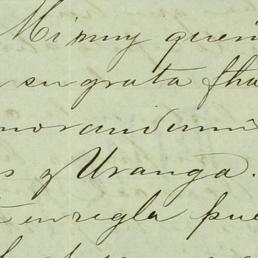 Mi muy quer
su grata fha
morandum
s y Uranga.
en regla pue